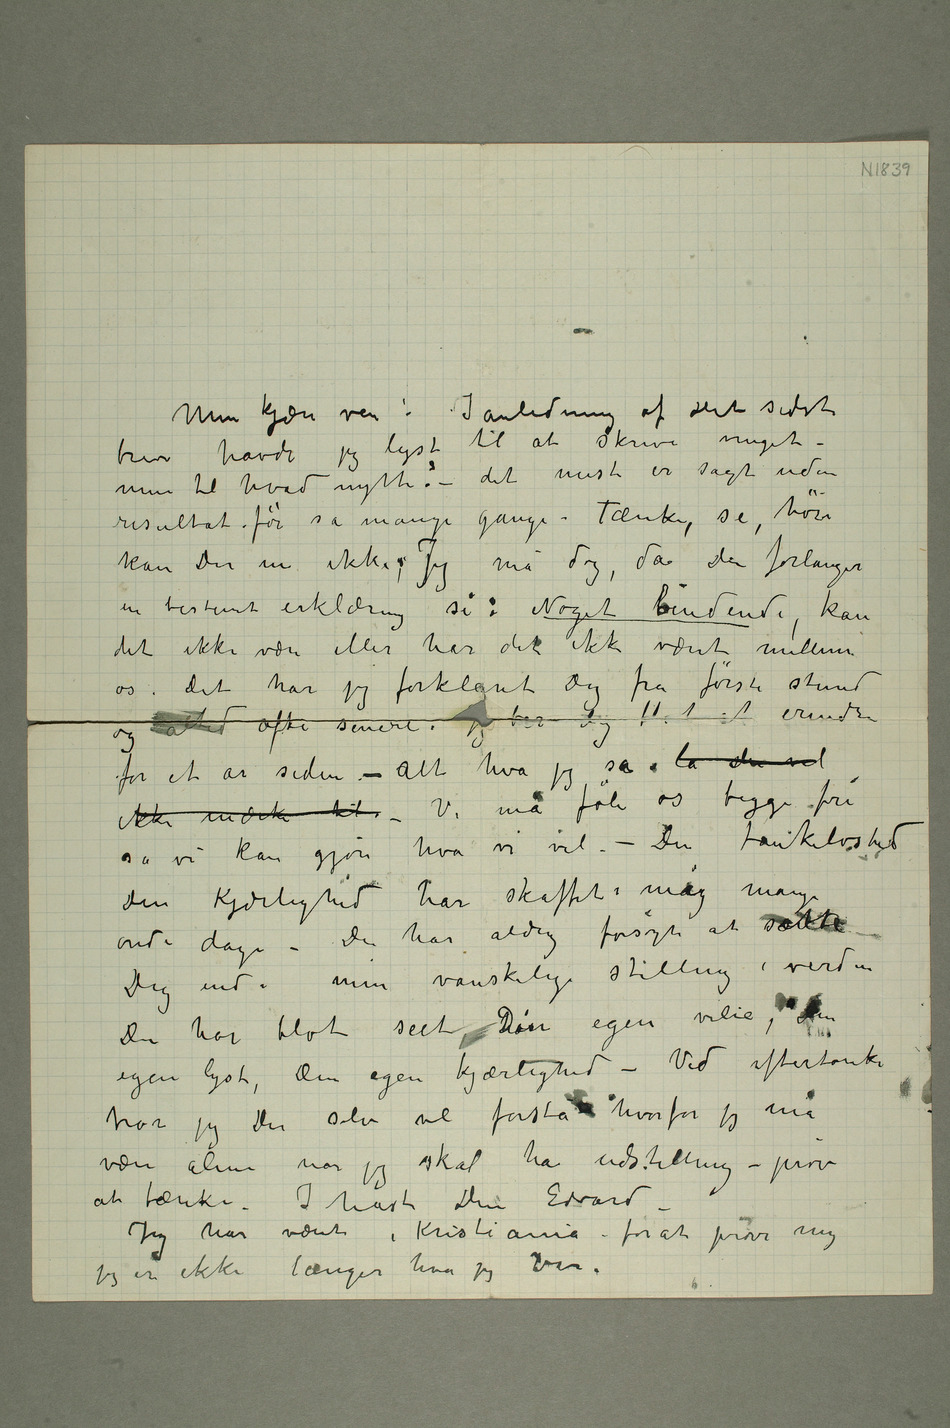 N1839
Min kjære ven! I anledning af dit sidste
brev havde jeg lyst til at skrive meget –
men til hvad nytte? – det meste er sagt uden
resultat før så mange gange – Tænke, se, høre
kan Du nu ikke; Jeg må dog, da Du forlanger
en bestemt erklæring si: Noget bindende, kan
det ikke være eller har det ikke været mellem
os. Det har jeg forklaret Dig fra første stund
og altid ofte senere. jeg ber Dig erindre
for et år siden – alt hva jeg sa. la du vel
ikke mærke til. – Vi må føle os begge fri
så vi kan gjøre hva vi vil. – Din tankeløshed
Din Kjærlighed har skaffet mig mange
onde dage – Du har aldrig forsøgt at sætte
Dig ind i min vanskelige stilling i verden
Du har blot seet Din egen vilie, Din
egen lyst, Din egen kjærlighed – Ved eftertanke
tror jeg Du selv vil forstå hvorfor jeg må
være alene når jeg skal ha udstilling – prøv
at tænke. I hast Din Edvard –
Jeg har været i Kristiania forat prøve mig
jeg er ikke længer hva jeg var.